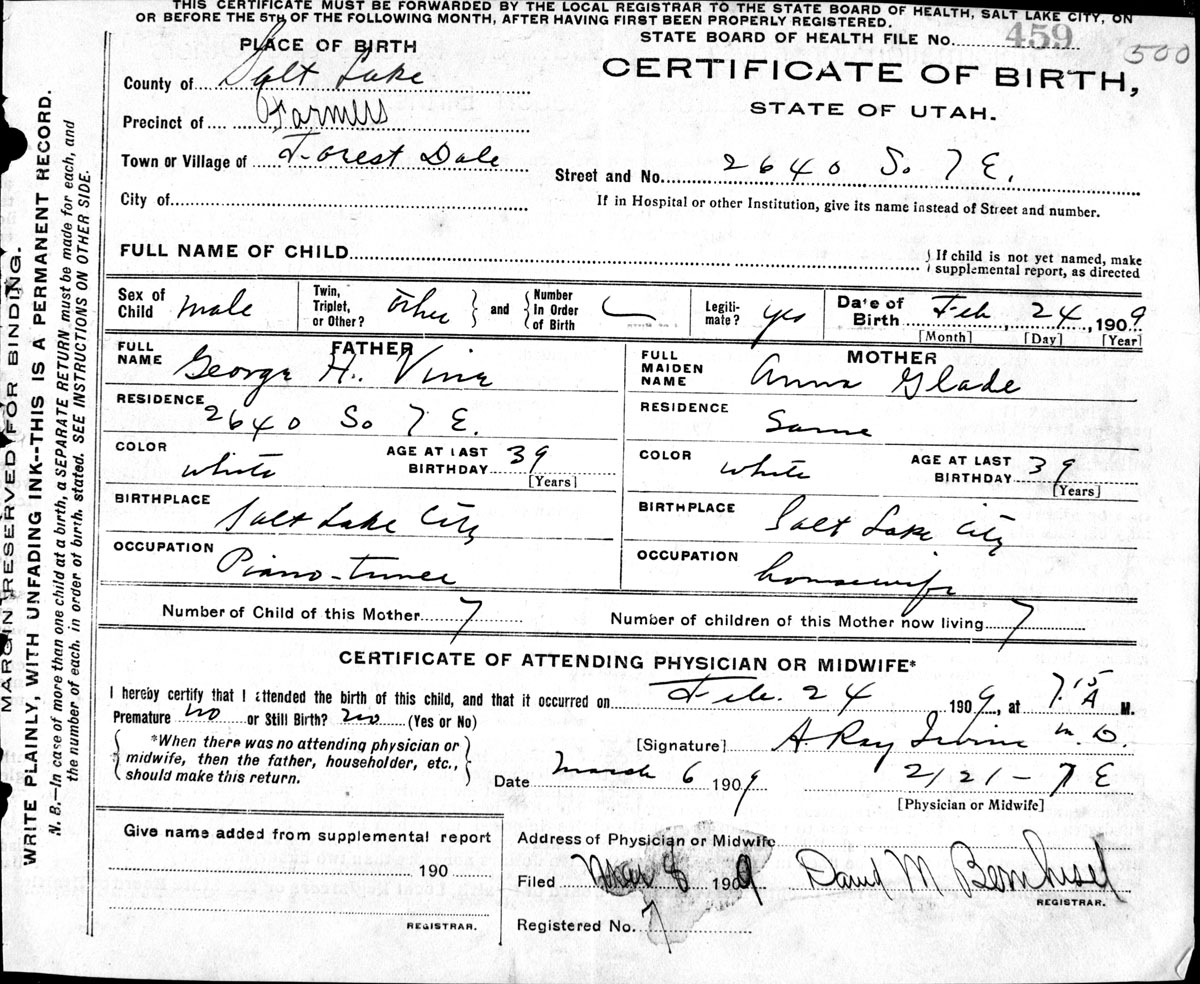 THIS CERTIFICATE MUST BE FORWARDED BY THE LOCAL REGISTRAR TO THE STATE BOARD OF HEALTH, SALT LAKE CITY, ON
OR BEFORE THE 5TH OF THE FOLLOWING MONTH, AFTER HAVING FIRST BEEN PROPERLY REGISTERED.
STATE BOARD OF HEALTH FILE No. 459
500
PLACE OF BIRTH
CERTIFICATE OF BIRTH,
STATE OF UTAH.
County of Salt Lake
Precinct of Farmers
Town or Village of Forest Dale
Street and No. 2640 So 7 E.
City of
If in Hospital or other Institution, give its name instead of Street and number.
FULL NAME OF CHILD
If child is not yet named, make
supplemental report, as directed
Sex of Child male
Twin, Triplet, or Other? other and Number In Order of Birth
Legiti-mate? yes
Date of Birth Feb 24, 1909
[Month] [Day] [Year]
FATHER
FULL NAME George H. Vine
RESIDENCE 2640 So 7 E.
COLOR white AGE AT LAST BIRTHDAY 39
[Years]
BIRTHPLACE Salt Lake City
OCCUPATION Piano-tuner
MOTHER
FULL MAIDEN NAME Anna Glade
RESIDENCE Same
COLOR white AGE AT LAST BIRTHDAY 39
[Years]
BIRTHPLACE Salt Lake City
OCCUPATION housewife
Number of Child of this Mother 7 Number of children of this Mother now living 7
CERTIFICATE OF ATTENDING PHYSICIAN OR MIDWIFE*
I hereby certify that I attended the birth of this child, and that it occurred on Feb. 24 1909, at 7.15 A M.
Premature no or Still Birth? no (Yes or No)
*When there was no attending physician or
midwife, then the father, householder, etc.,
should make this return.
[Signature] A. Ray Irvine M.D.
Date March 6 1909 2121 - 7 E
[Physician or Midwife]
Give name added from supplemental report
190
REGISTRAR.
Address of Physician or Midwife
Filed Mar 8 1909 David M Bernhisel
REGISTRAR.
Registered No. 7
MARGIN RESERVED FOR BINDING.
WRITE PLAINLY, WITH UNFADING INK--THIS IS A PERMANENT RECORD.
N. B.—In case of more than one child at a birth, a SEPARATE RETURN must be made for each, and
the number of each, in order of birth, stated. SEE INSTRUCTIONS ON OTHER SIDE.